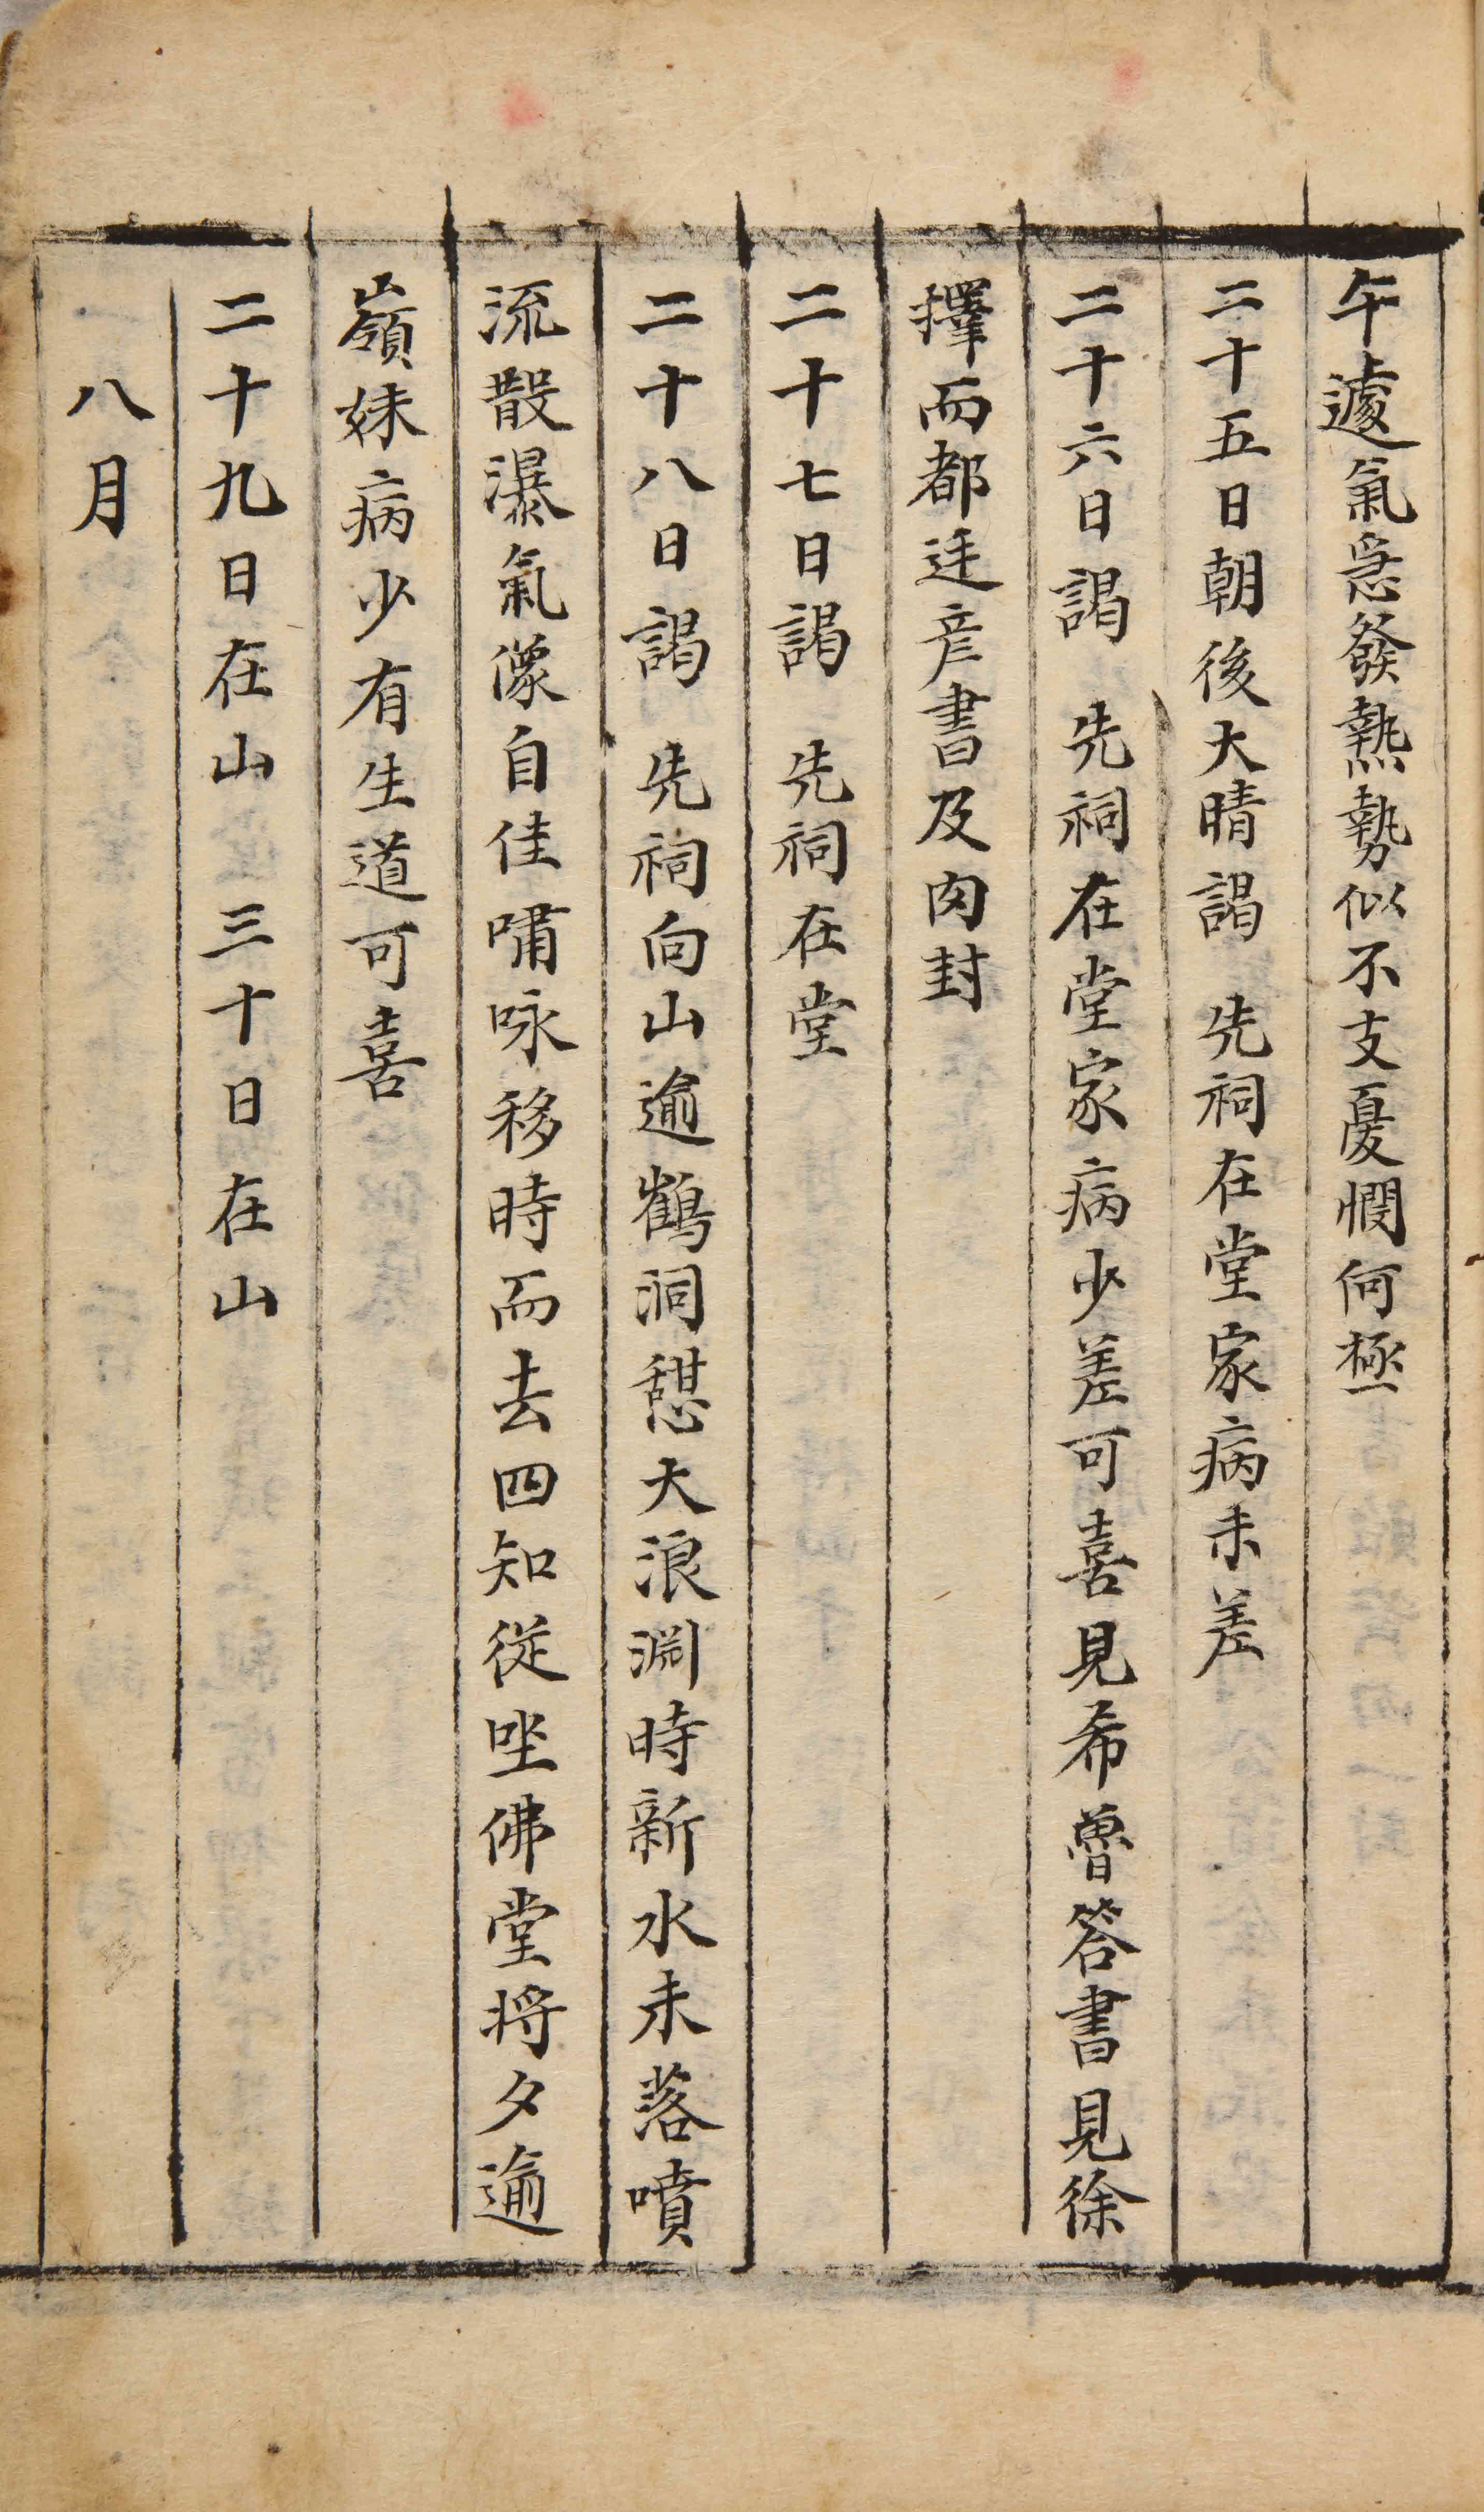 午遽氣急發熱勢似不支憂憫何極
二十五日朝後大晴謁 先祠在堂家病未差
二十六日謁 先祠在堂家病少差可喜見希魯答書見徐
擇而都廷彦書及肉封
二十七日謁 先祠在堂
二十八日謁 先祠向山逾鶴洞憇大浪淵時新水未落噴
流散瀑氣像自佳嘯咏移時而去四知從坐佛堂將夕逾
嶺妹病少有生道可喜
二十九日在山 三十日在山
八月